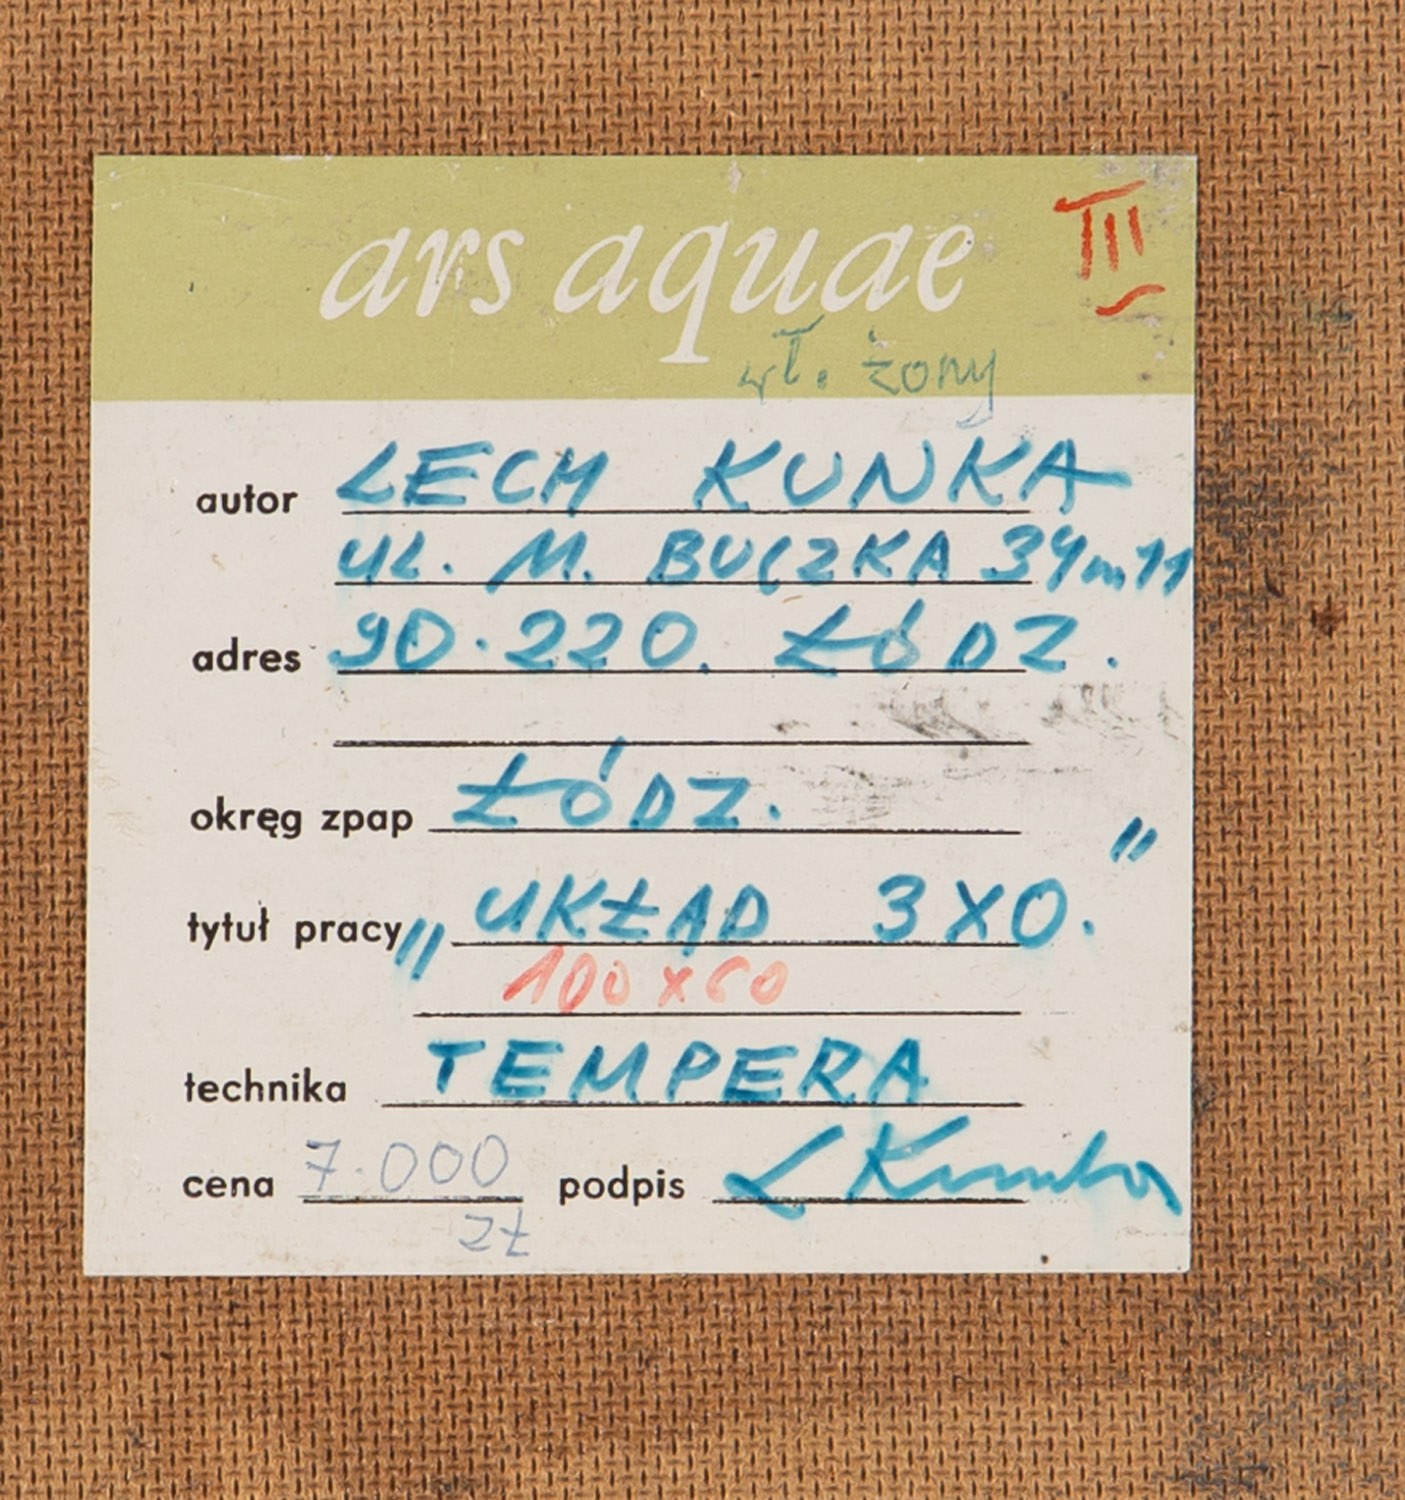 ars aquae III
wł. żony
autor LECH KUNKA
UL. M. BUCZKA 34 m 11
adres 90.220. ŁÓDZ.
okręg zpap ŁÓDZ.
tytuł pracy „UKŁAD 3XO."
100x60
technika TEMPERA
cena 7.000 podpis L Kunka
zł